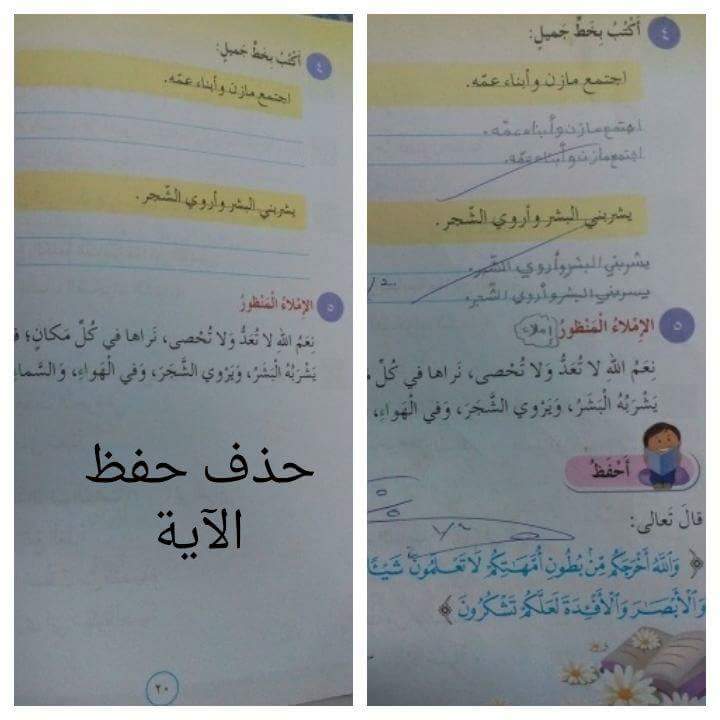 ٤ أَكْتُبُ بِخَطٍّ جَميلٍ:
اجتمع مازن وأبناء عمّه.
اجتمع مازن وأبناء عمّه.
اجتمع مازن وأبناء عمّه.
يشربني البشر وأروي الشّجر.
يشربني البشر وأروي الشّجر.
يشربني البشر وأروي الشّجر.
٥ الإِمْلاءُ الْمَنْظورُ إملاء
نِعَمُ اللهِ لا تُعَدُّ وَلا تُحْصى، نَراها في كُلِّ
يَشْرَبُهُ الْبَشَرُ، وَيَرْوي الشَّجَرَ، وَفي الْهَواءِ،
أَحْفَظُ
قالَ تَعالى:
﴿ وَاللَّهُ أَخْرَجَكُم مِّنۢ بُطُونِ أُمَّهَٰتِكُمْ لَا تَعْلَمُونَ شَيْئًا
وَٱلْأَبْصَٰرَ وَٱلْأَفْـِٔدَةَ لَعَلَّكُمْ تَشْكُرُونَ ﴾
٤ أَكْتُبُ بِخَطٍّ جَميلٍ:
اجتمع مازن وأبناء عمّه.
يشربني البشر وأروي الشّجر.
٥ الإِمْلاءُ الْمَنْظورُ
نِعَمُ اللهِ لا تُعَدُّ وَلا تُحْصى، نَراها في كُلِّ مَكانٍ؛
يَشْرَبُهُ الْبَشَرُ، وَيَرْوي الشَّجَرَ، وَفي الْهَواءِ، وَالسَّماءِ
حذف حفظ
الآية
٢٠